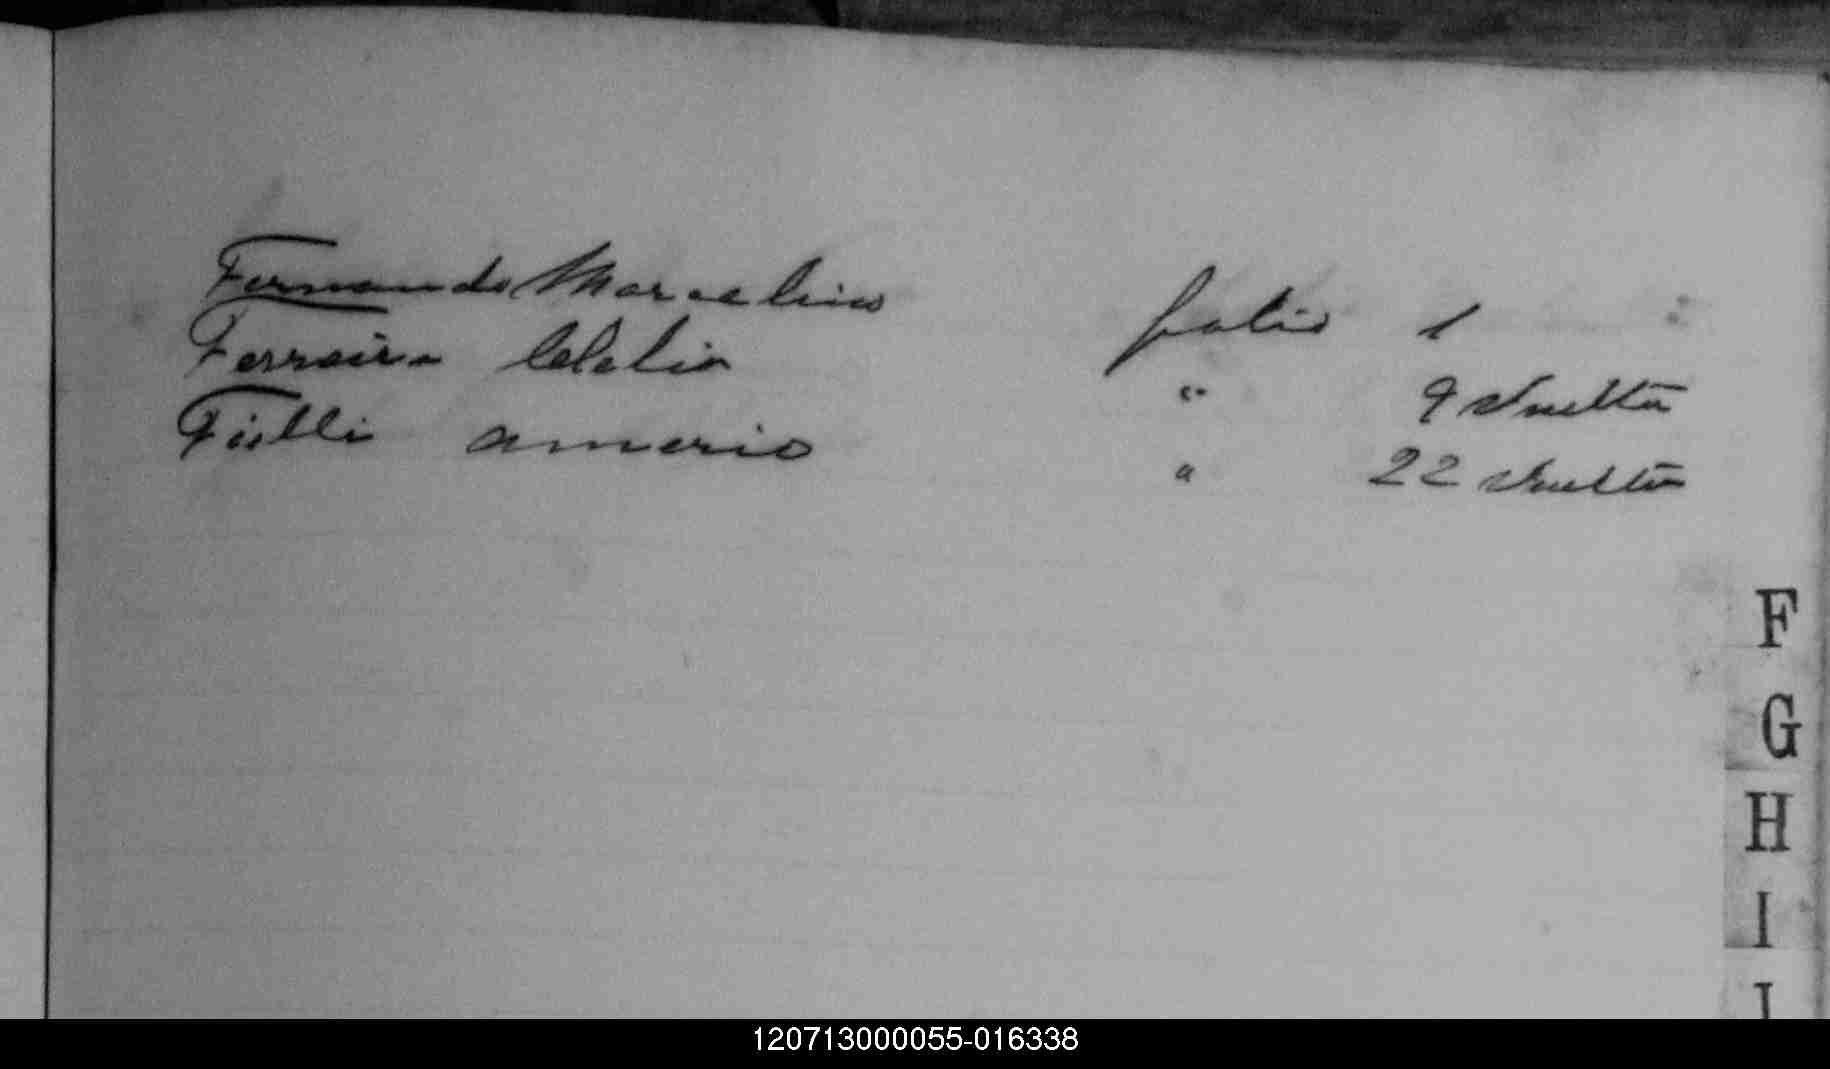 Fernando Marcelino folio 1
Ferreira Clelia " 9 Vuelta
Americo " 22 Vuelta
F
G
H
I
J
120713000055-016338